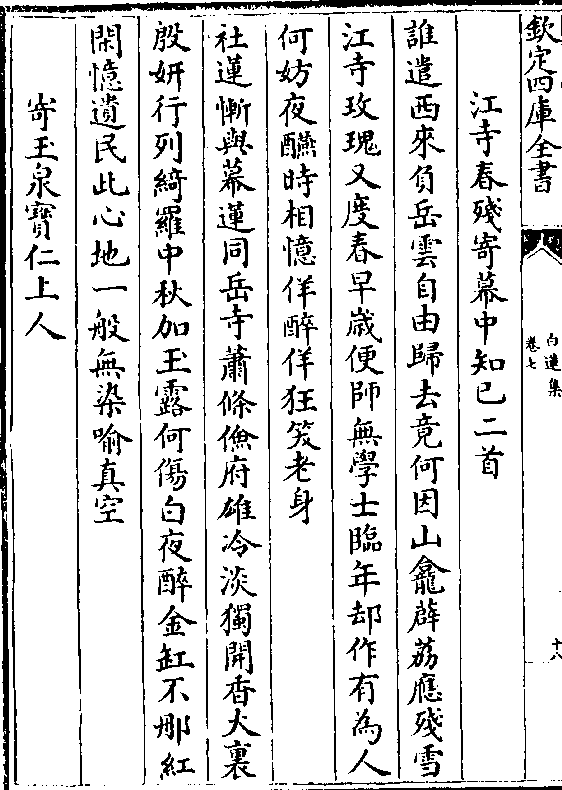 欽定四庫全書
白蓮集
卷七
十八
江寺春殘寄幕中知己二首
誰遣西來負岳雲自由歸去竟何因山龕薜荔應殘雪
江寺玫瑰又度春早歲便師無學士臨年却作有為人
何妨夜醼時相憶佯醉佯狂笑老身
社蓮慚與幕蓮同岳寺蕭條儉府雄冷淡獨開香火裏
殷妍行列綺羅中秋加玉露何傷白夜醉金缸不那紅
閑憶遺民此心地一般無染喻真空
寄玉泉寶仁上人